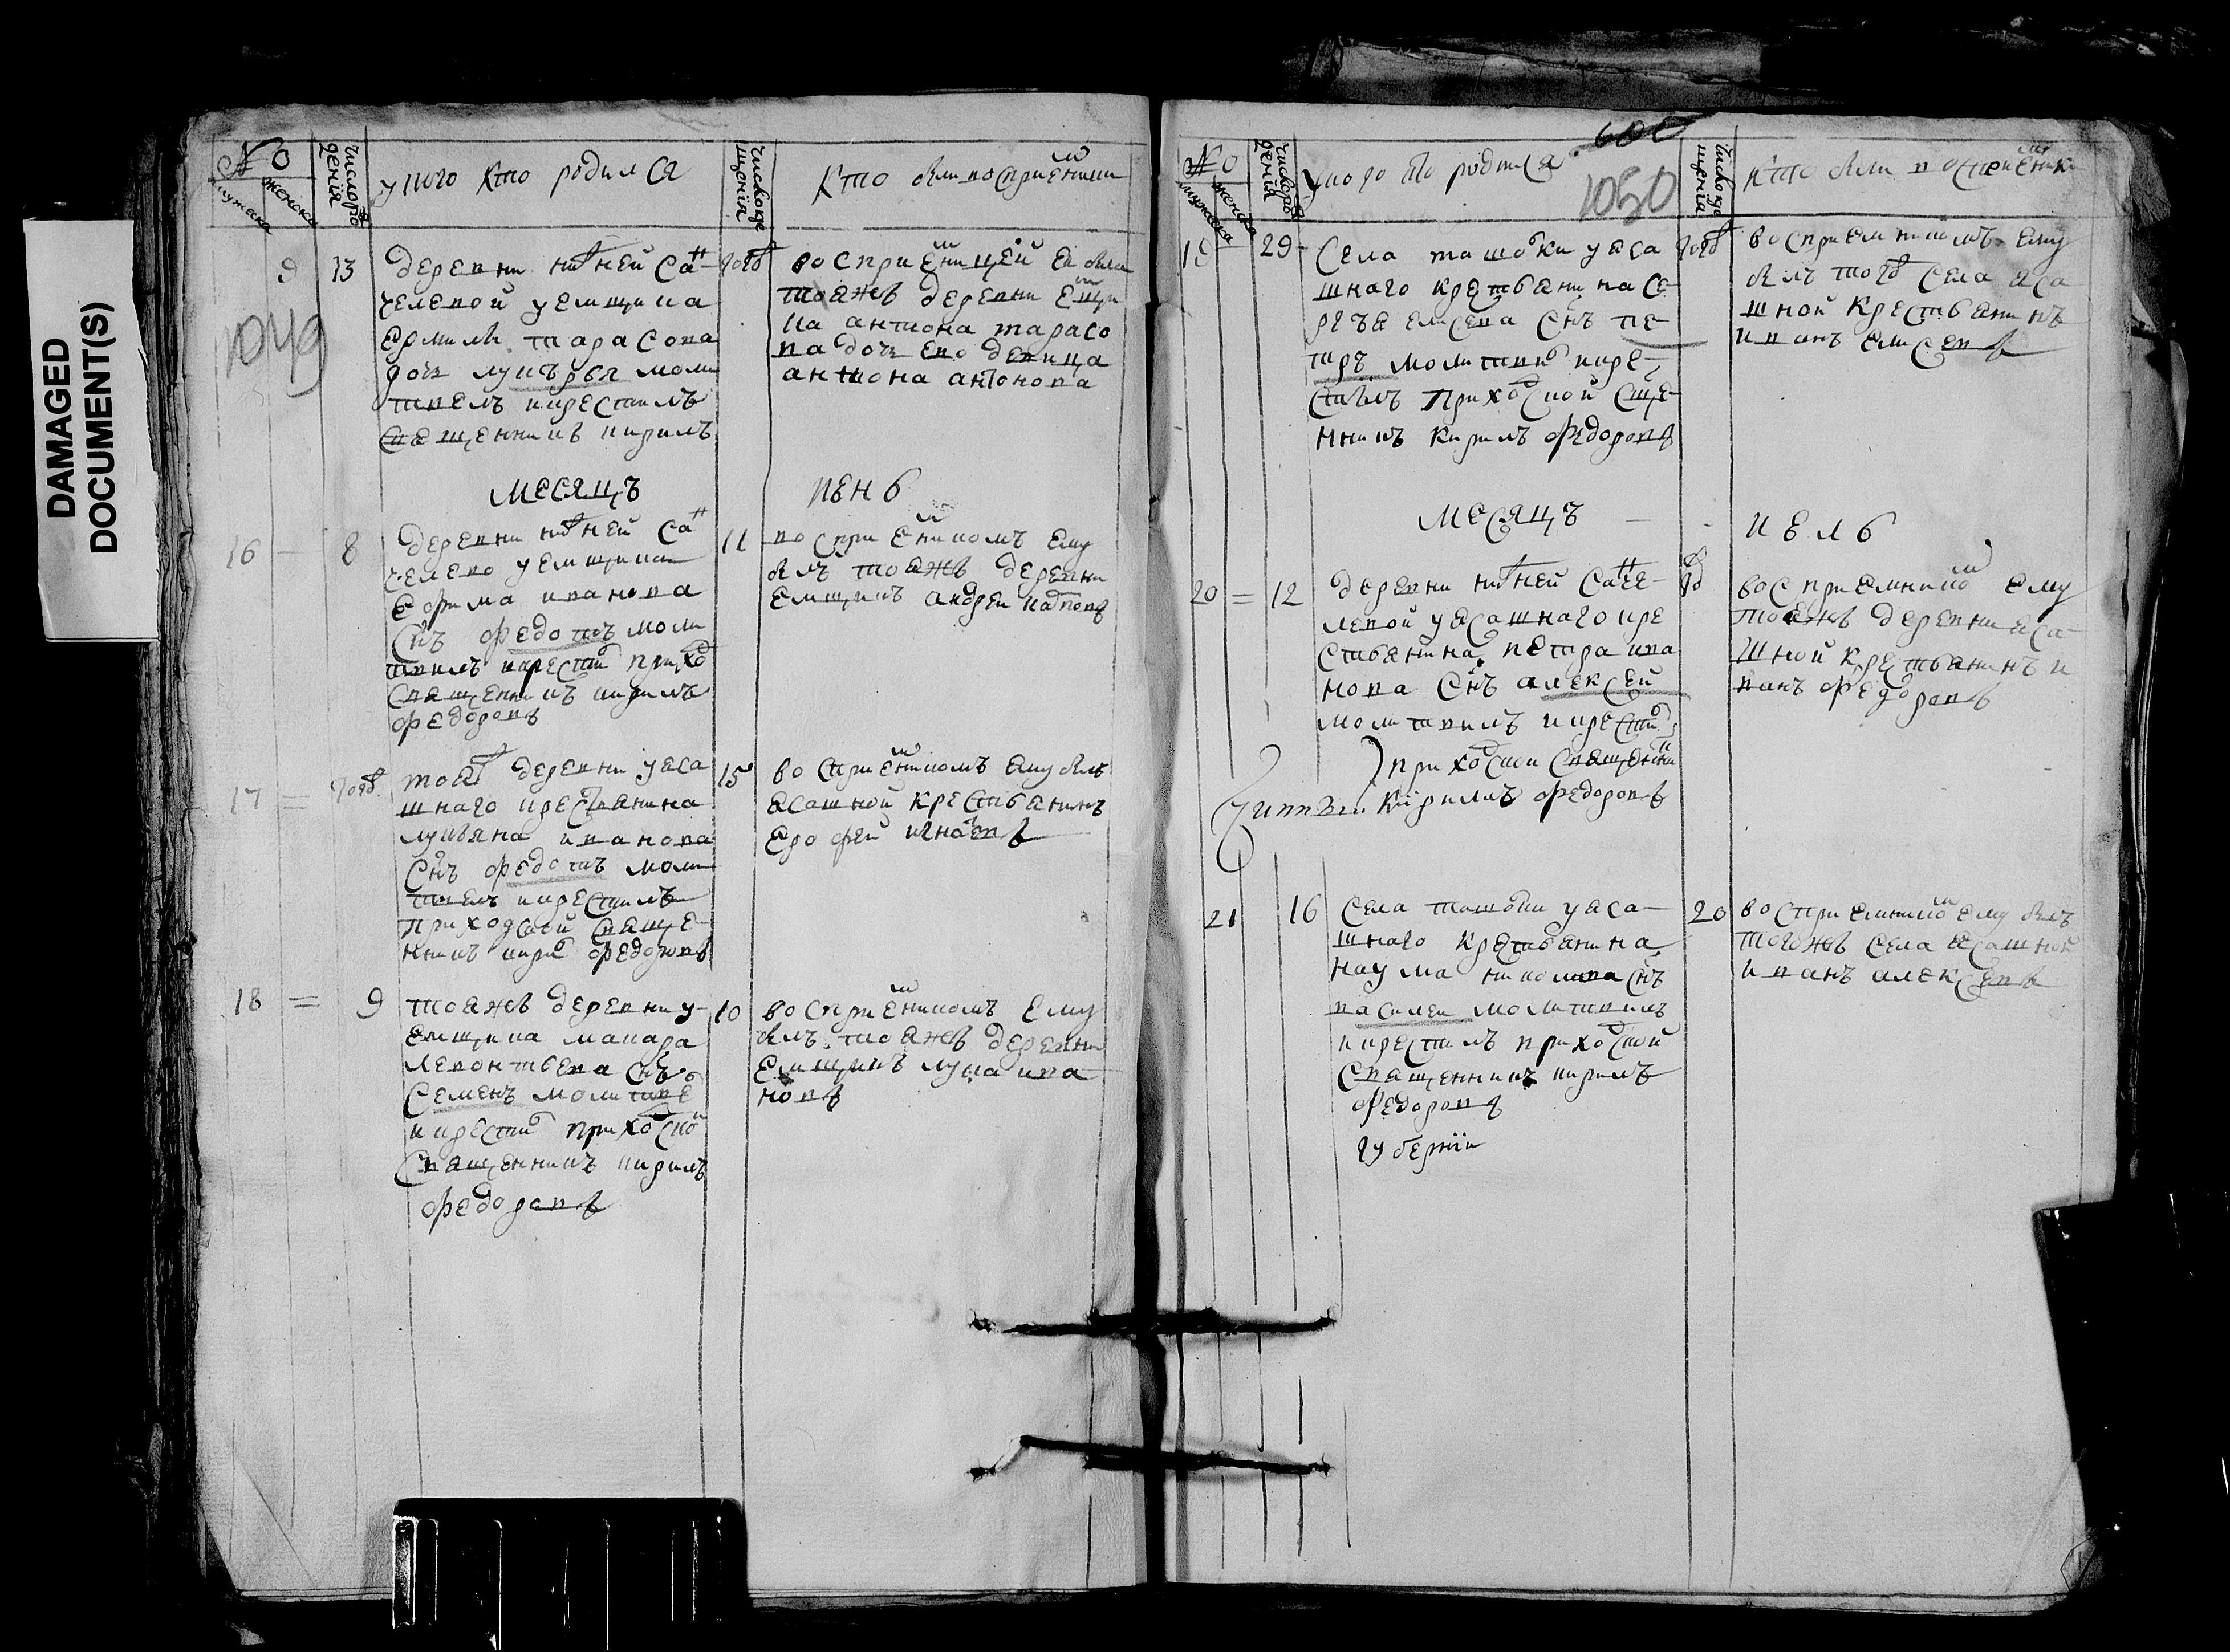 DAMAGED
DOCUMENT(S)
№
мужска
женска
число ро
денїя
у ково кто родился
число кре
щенїя
кто были восприемники
9
13
деревни нижней сан
челевой у емщика
ермилы тарасова
дочь лукерья моли
твилъ и крестилъ
священникъ кирилъ
тогож
восприемницей ей была
тояжъ деревни емщи
ка антона тарасо
ва дочь ево девица
антона антонова
1049
месяцъ
июнь
16
8
деревни нижней сан
челево у емщика
ефима иванова
снъ федотъ моли
твилъ и крестил приход
священникъ кирилъ
федоровъ
11
восприемникомъ ему
былъ тояжъ деревни
емщикъ андрей
17
тогож
тояж деревни у яса
шнаго крестьянина
лукьяна иванова
снъ федотъ моли
твилъ и крестилъ
приходской свяще
нникъ кирил федоровъ
15
восприемникомъ ему былъ
ясашной крестьянинъ
ерофей игнатевъ
18
9
тояжъ деревни у
емщика макара
левонтьева снъ
семенъ молитвил
и крестил приходской
священникъ кирилъ
федоровъ
10
восприемникомъ ему
былъ тояжъ деревни
емщикъ лука ива
новъ
600
1050
№
мужска
женска
число ро
денїя
у ково кто родился
число кре
щенїя
кто были восприемники
19
29
села ташовки у яса
шнаго крестьянина се
ргъя елисева снъ пе
тръ молитвил и кре
стилъ приходской свще
нникъ кирилъ федоровъ
тогож
восприемникомъ ему
былъ тогож села яса
шной крестьянинъ
иванъ елисевъ
месяцъ
июль
20
12
деревни нижней санче
левой у ясашнаго кре
стьянина петра ива
нова снъ алексей
молитвилъ и крестил
приходской священни
къ кирилъ федоровъ
восприемником ему
тояжъ деревни яса
шной крестьянинъ и
ванъ федоровъ
21
16
села ташовки у яса
шнаго крестьянина
наума николаева снъ
василей молитвилъ
и крестилъ приходской
священникъ кирилъ
федоровъ
губернїи
20
восприемником ему былъ
тогожъ села ясашной
иванъ алексевъ